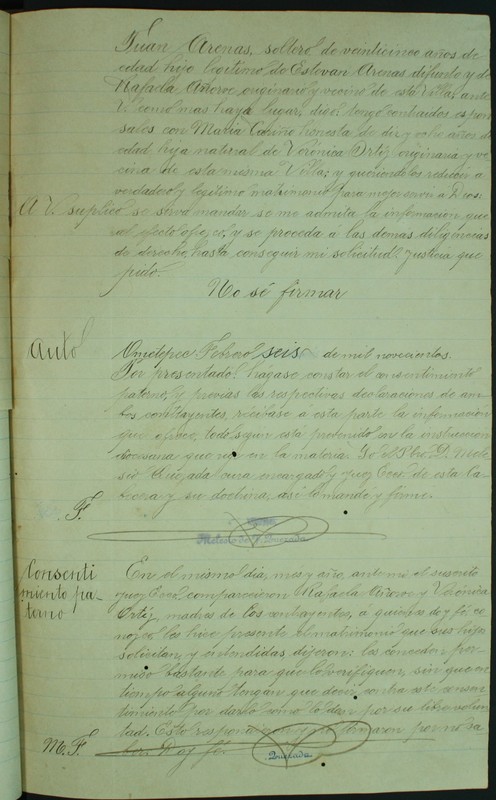 Juan Arenas, soltero de veinticinco años de
edad hijo legitimo de Estevan Arenas difunto y de
Rafaela Añorve originario y vecino de esta Villa, ante
V. como mas haya lugar, digo: tengo contraidos espon
sales con Maria honesta de diez y ocho años de
edad hija natural de Verónica Ortiz originaria y ve
cina de esta misma Villa; y queriendo los reducir a
verdadero y legitimo matrimonio para mejor servir a Dios.
A V. suplico se sirva mandar se me admita la informacion que
al efecto ofrezco, y se proceda á las demas diligencias
de derecho, hasta conseguir mi solicitud. Justicia que
pido.
No sé firmar
Auto
Ometepec Febrero seis de mil novecientos.
Por presentado: hagase constar el consentimiento
paterno, y previas las respectivas declaraciones de am
bos contrayentes, recibase a esta parte la informacion
que ofrece, todo segun está prevenido en la instruccion
diocesana que rige en la materia. Yo el Pbro. D. Mele
sio Quezada cura encargado y juez Ecco. de esta Ca
becera y su doctrina, asi lo mandé y firmé.
F.
Melesio Quezada
Consenti
miento pa-
terno
En el mismo dia, mes y año, ante mi el suscrito
juez Ecco. comparecieron Rafaela Añorve y Verónica
Ortiz, madres de los contrayentes, á quienes doy fé co
nozco les hice presente el matrimonio que sus hijos
solicitan, y entendidas dijeron: les conceden per-
miso bastante para que lo verifiquen, sin que en
tiempo alguno tengan que decir contra este consen
timiento por darlo como lo dan por su libre volun
tad. Esto respondieron y no firmaron por no sa
ber. Doy fé.
M. F.
Quezada